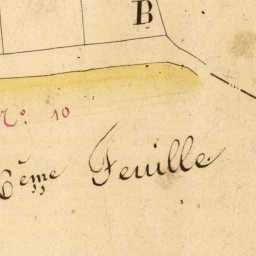 B
N.º 10
6ème Feuille.